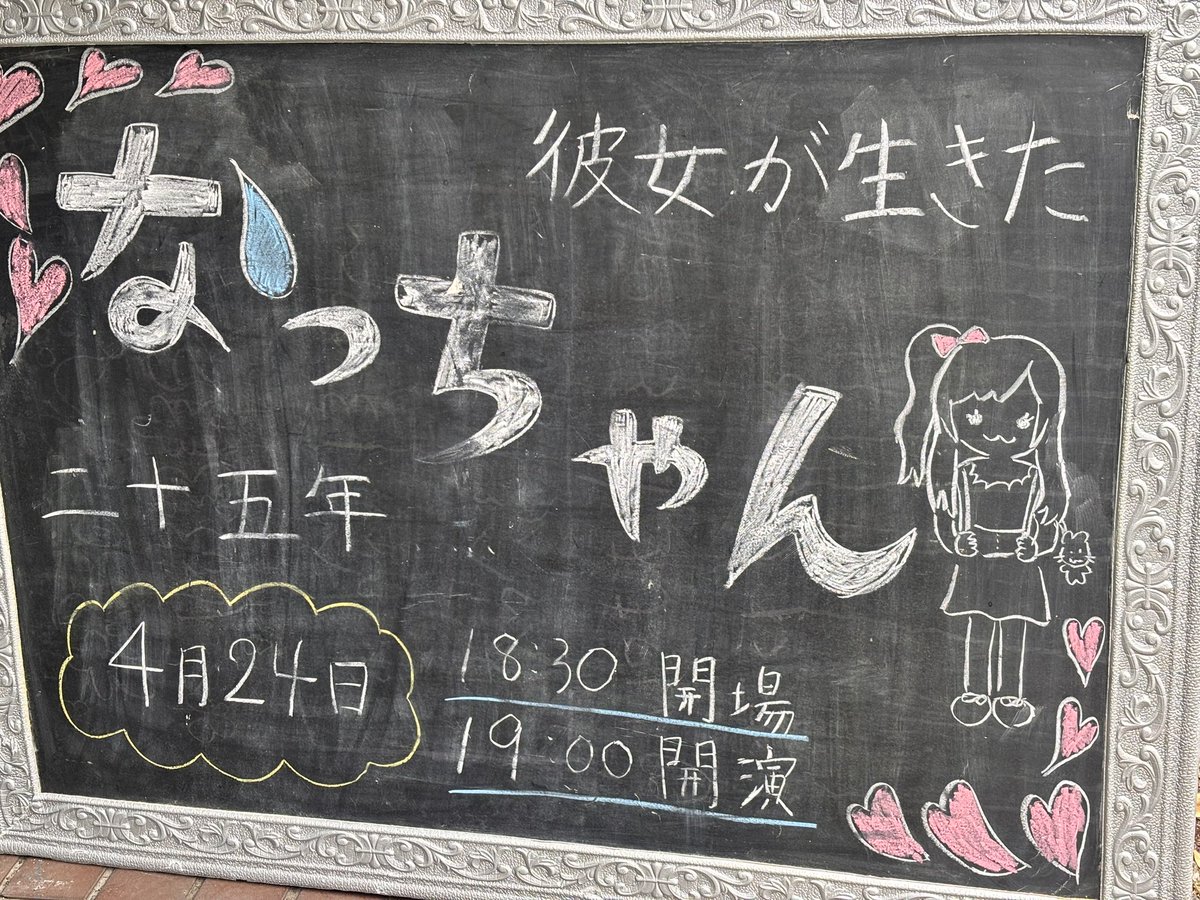 なっちゃん
彼女が生きた
二十五年
4月24日
18:30 開場
19:00 開演